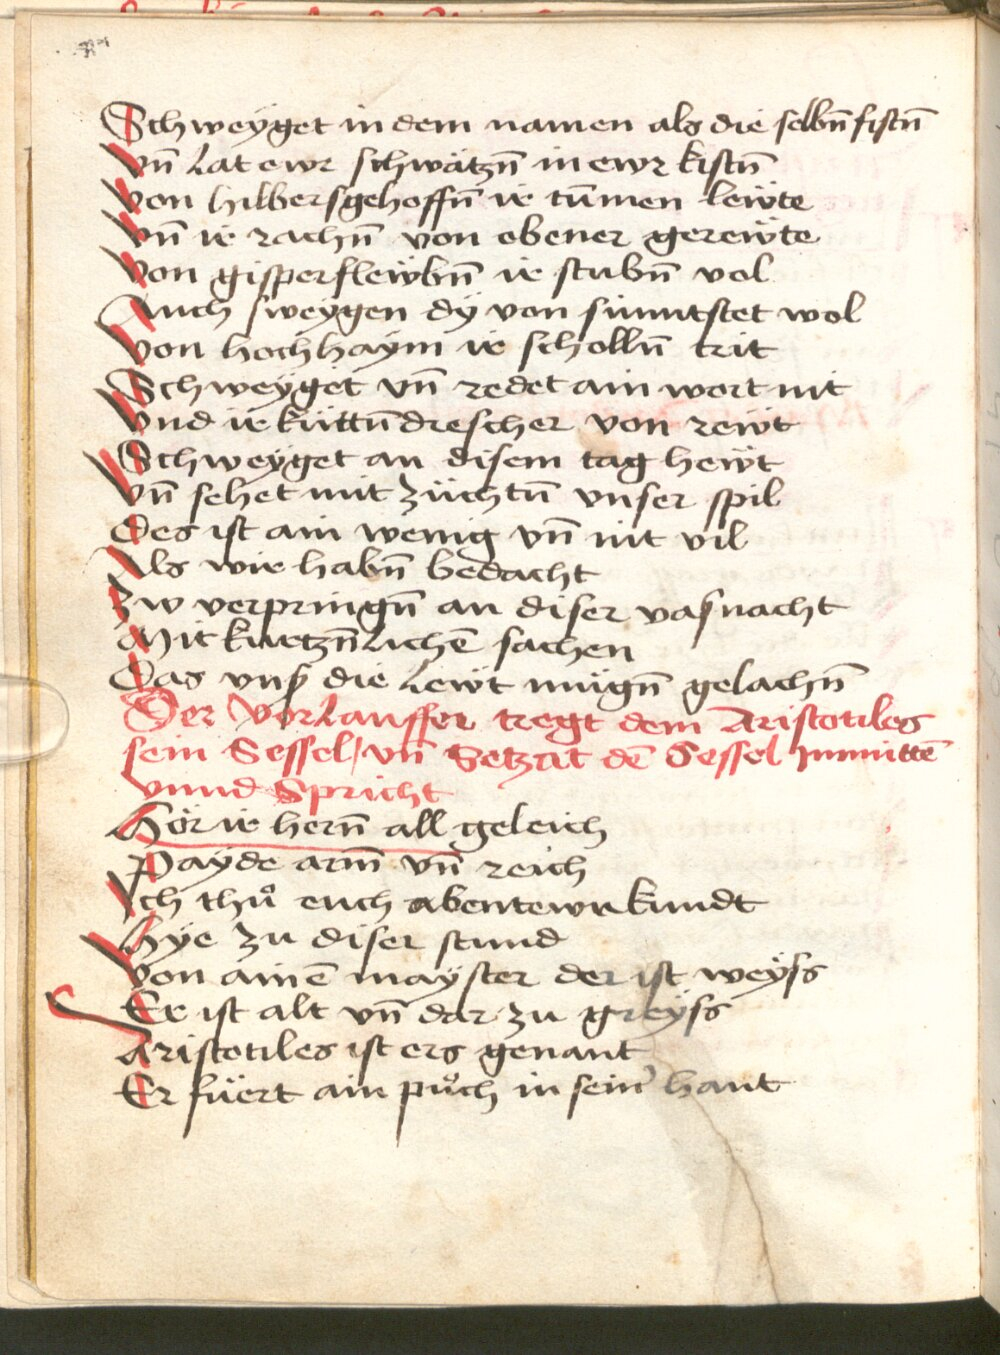 Schweÿget in dem namen als die selbn̄ fistn̄
Vn̄ Lat ewr schwätzn̄ in ewr kistn̄
Von hilbersgehoffn̄ ir tūmen lewte
Vn̄ ir rachn̄ von ebener gerewte
Von gisperslewbn̄ ir stubn̄ vol
Auch sweygen dÿ von sunntstet wol
Von hochhaÿm ir scholln̄ trit
Schweÿget vn̄ redet ain wort nit
Vnd ir küttn̄drescher von rewt
Schweÿget an disem tag hewt
Vn̄ sehet mit züchtn̄ vnser spil
Des ist ain wenig vn̄ nit vil
Als wir habn̄ bedacht
Zw verpringn̄ an diser vasnacht
Mit kurtzn̄lichē sachen
Das vnß die Lewt mügn̄ gelachn̄
Der Vorlauffer tregt dem Aristotiles
sein Sessel/ vn̄ Setzät dē Sessel Inmittē
vnnd Spricht
Hör ir hern̄ all geleich
Payde arm̄ vn̄ reich
Ich thů euch abentewr kundt
Hÿe zu diser stund
Von ainē maÿster der ist weÿss
Er ist alt vn̄ dar zu greÿss
Aristotiles ist ers genant
Er füert ain půch in sein' hant